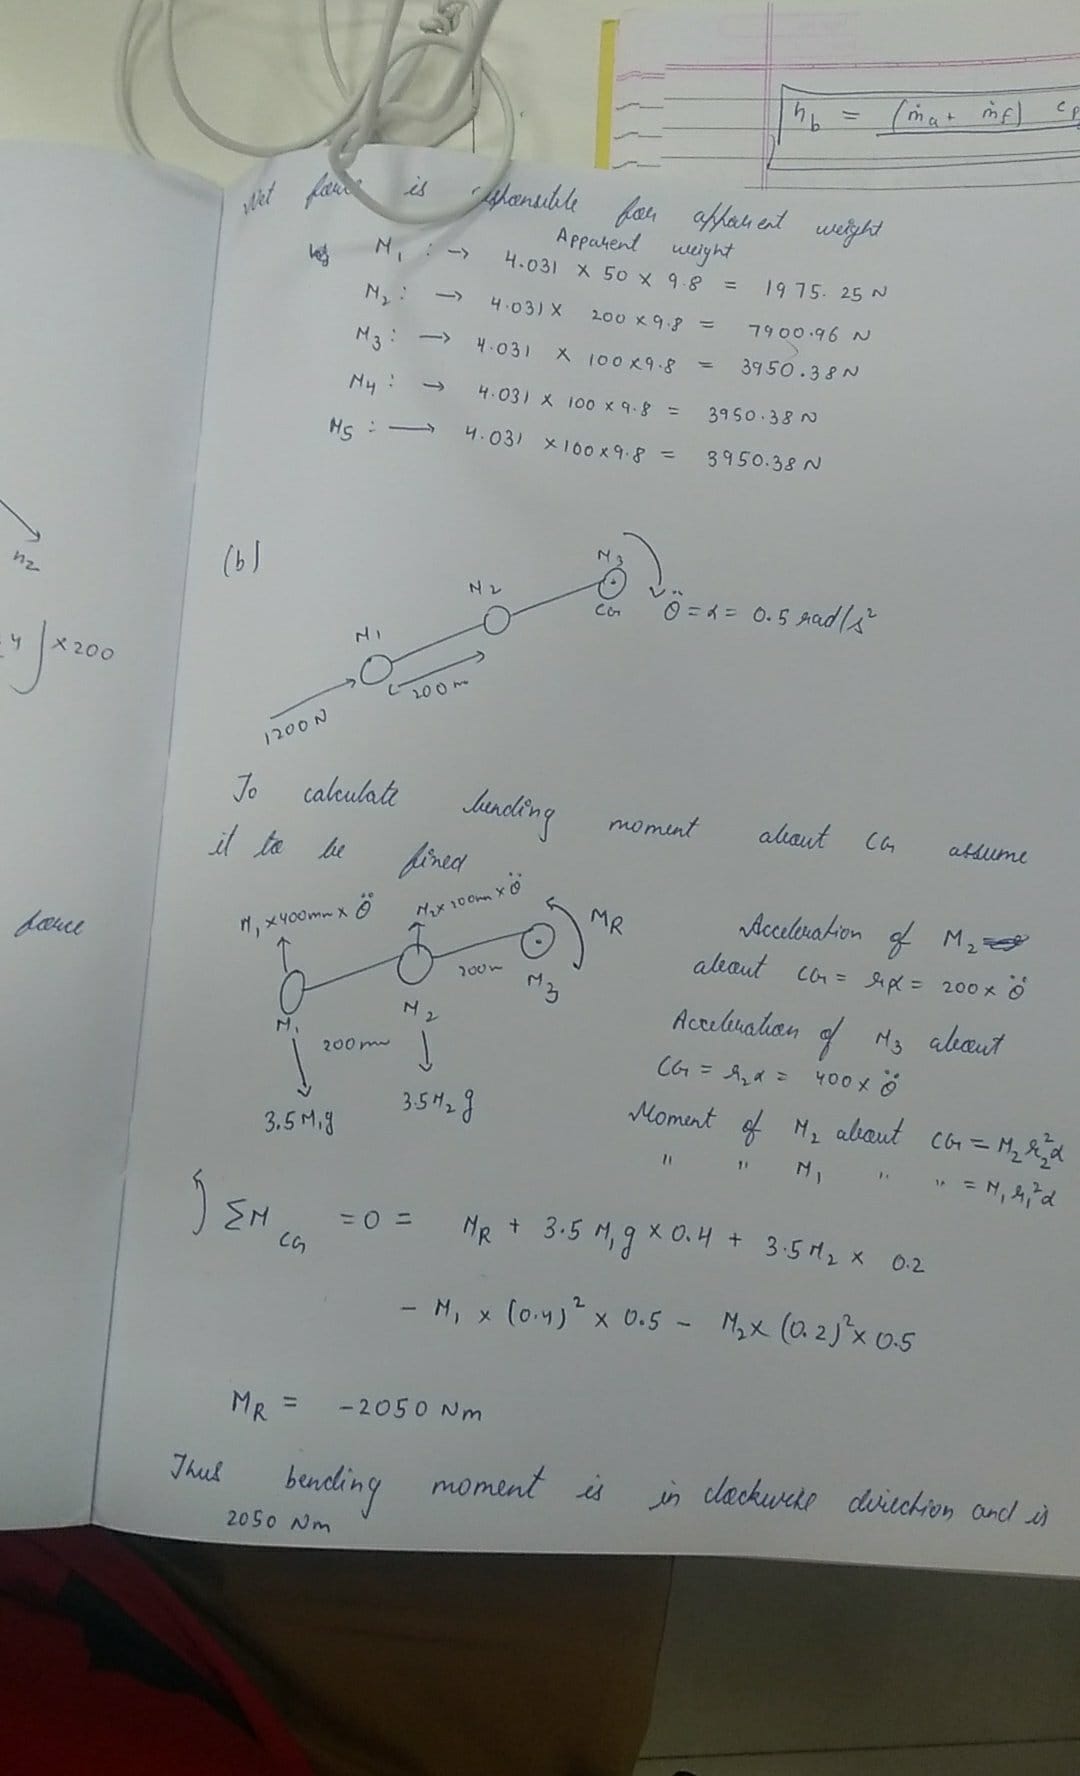 ṅ_b = (ṁa + ṁf) cp
Net force is responsible for apparent weight
Apparent weight
M₁ : → 4.031 × 50 × 9.8 = 1975.25 N
M₂ : → 4.031 × 200 × 9.8 = 7900.96 N
M₃ : → 4.031 × 100 × 9.8 = 3950.38 N
M₄ : → 4.031 × 100 × 9.8 = 3950.38 N
M₅ : → 4.031 × 100 × 9.8 = 3950.38 N
n₂
4] × 200
force
(b)
M₃
M₂
CG
θ̈ = α = 0.5 rad/s²
M₁
200 m
1200 N
To calculate bending moment about CG assume
it to be fixed
M₁ × 400mm × θ̈
M₂ × 200mm × θ̈
MR
200m
M₃
M₁
M₂
200 mm
3.5 M₁g
3.5 M₂g
Acceleration of M₂
about CG = rα = 200 × θ̈
Acceleration of M₃ about
CG = r₂α = 400 × θ̈
Moment of M₂ about CG = M₂ r₂² α
" " M₁ " " = M₁ r₁² α
ΣM CG = 0 = MR + 3.5 M₁g × 0.4 + 3.5 M₂ × 0.2
- M₁ × (0.4)² × 0.5 - M₂ × (0.2)² × 0.5
MR = -2050 Nm
Thus bending moment is in clockwise direction and is
2050 Nm